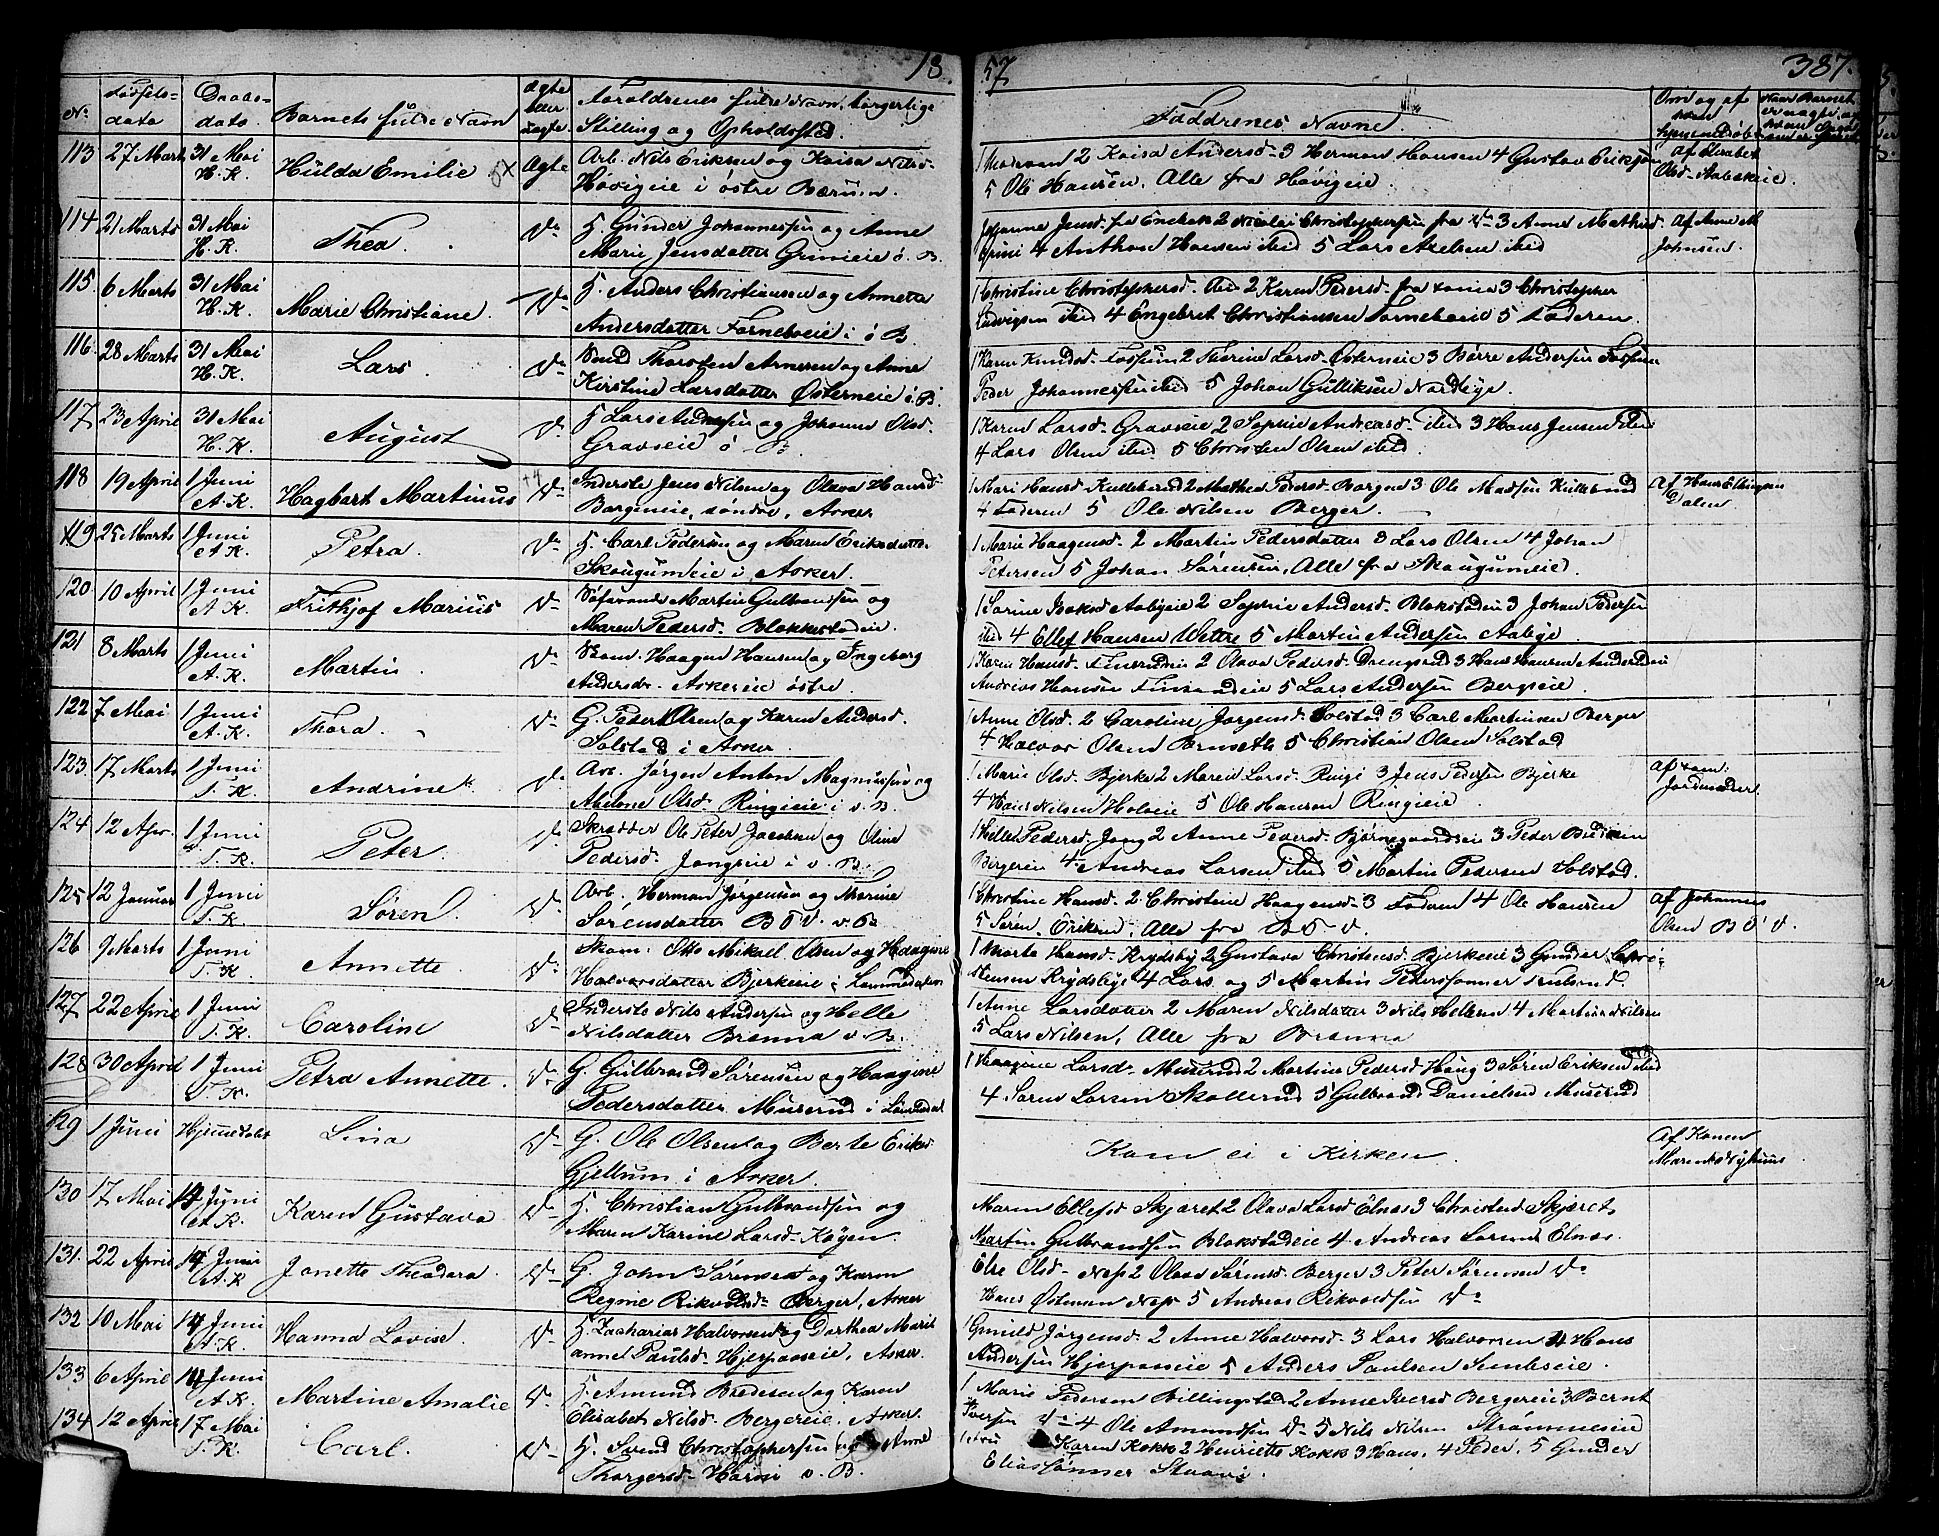 18 57 387.
No. Fødsels-data Daabs-data Barnets fulde Navn Ægte eller uægte. Forældrenes fulde Navn, borgerlige Stilling og Opholdssted. Faddrenes Navne.
113 27 Marts 31 Mai H. K. Hulda Emilie Ægte Arb. Nils Eriksen og Kaisa Nilsd. Høvigeie i østre Bærum. 1 Madsen 2 Kaisa Andersd. 3 Herman Hansen 4 Gustav Eriksen 5 Ole Hansen, Alle fra Høvigeie. Af Elisabet Olsd.
114 21 Marts 31 Mai H. K. Thea. Do H. Gunder Johannessen og Anne Marie Jensdatter Grinieie ø. B. Johanne Jensd. fra 2 Nicolai Christophersen fra Do 3 Anne Mathisd. Grini 4 Anthon Hansen ibid 5 Lars Axelsen ibid Af Anne M Johnsen.
115. 6 Marts 31 Mai H. K. Marie Christiane. Do H. Anders Christiansen og Annette Andersdatter Forneboeie i ø B. 1 Christine Christophersd. ibid 2 Karen Pedersd. fra samme 3 Christopher Ludvigsen ibid 4 Engebret Christiansen Forneboeie 5 Faderen.
116. 28 Marts 31 Mai H. K. Lars. Do Svend Thorsten Arnesen og Anne Kirstine Larsdatter Østerneie ø. B. 1 Karen Knudsd. Fossum 2 Therine Larsd. Østerneie 3 Børre Andersen Fossum Peder Johannessen ibid 5 Johan Gulliksen Nordbye.
117 23 April 31 Mai H. K. August Do H Lars Andersen og Johanne Olsd. Gravseie ø B. 1 Karen Larsd. Gravseie 2 Sophie Andreasd. ibid 3 Hans Jensen ibid 4 Lars Olsen ibid 5 Christen Olsen ibid.
118 19 April 1 Juni A. K. Hagbart Martinus Do Inderste Jens Nilsen og Olava Hansd. Borgeneie, søndre, Asker 1 Mari Hansd. Kullebund 2 Mathea Pedersd. Borgen 3 Ole Madsen Kullebund 4 Faderen 5 Ole Nilsen Berger. Af Hans Ellingsen Dalen
119 25 Marts 1 Juni A. K. Petra. Do H. Carl Pedersen og Maren Eriksdatter Skougumeie i Asker. 1 Marie Haagensd. 2 Martin Pedersdatter 3 Lars Olsen 4 Johan Petersen 5 Johan Sørensen, Alle fra Skougumeie.
120 10 April 1 Juni A K. Frithjof Marius Do Søfarende Martin Gulbrandsen og Maren Pedersd. Blokkestadeie. 1 Sorine Isaksd. Aabyeie 2 Sophie Andersd. Blokstadeie 3 Johan Pedersen ibid 4 Ellef Hansen Wettre 5 Martin Andersen Aabye.
121 8 Marts 1 Juni A. K. Martin. Do Haagen Hansen og Ingeborg Andersdr. Askereie østre. 1 Karen Hansd. Finsrudeie 2 Olava Pedersd. Drengsrud 3 Hans Hansen Andreas Hansen Finsrudeie 5 Lars Andersen Bergseie.
122 7 Mai 1 Juni A. K. Thora. Do G. Peder Olsen og Karen Andersd. Solstad i Asker. 1 Anne Olsd. 2 Caroline Jørgensd. Solstad 3 Carl Martinsen Berger 4 Halvor Olsen Brusets 5 Christian Olsen Solstad
123. 17 Marts 1 Juni T. K. Andrine Do Arb. Jørgen Anton Magnussen og Abelone Olsd. Ringieie i v. B. 1 Marie Olsd. Bjerke 2 Maren Larsd. Ringi 3 Jens Pedersen Bjerke 4 Hans Nilsen Holeie 5 Ole Hansen Ringieie. Af samme Jordmoder.
124 12 Apr. 1 Juni T. K. Peter. Do Skrædder Ole Peter Jacobsen og Oline Pedersd. Jongseie i v. B. 1 Helle Pedersd. Jong 2 Anne Pedersd. Bjørnegaardseie 3 Peder Bredesen Bergereie 4 Andreas Larsen ibid 5 Martin Pedersen Solstad.
125 12 Januar 1 Juni T. K. Søren. Do Arb. Herman Jørgensen og Marie Sørensdatter B Ø V. v. B 1 Christine Hansd. 2 Christine Haagensd. 3 Faderen 4 Ole Hansen 5 Søren Eriksen, Alle fra B Ø V. Af Johannes Olsen B Ø V.
126 9 Marts 1 Juni T. K. Annette. Do Skom. Otto Mikael Olsen og Haagine Halvorsdatter Bjerkeie i Lommedalen 1 Marte Hansd. Krydsby 2 Gustava Christensd. Bjerkeie 3 Gunder Christensen Krydsbye 4 Lars og 5 Martin Pederssønner Trulsrud.
127 22 April 1 Juni T. K. Caroline Do Inderste Nils Andersen og Helle Nilsdatter Brenna v. B. 1 Anne Larsdatter 2 Maren Nilsdatter 3 Nils Hellesen 4 Martin Nilsen 5 Lars Nilsen, Alle fra Brenna
128 30 April 1 Juni T. K. Petra Annette. Do G. Gulbrand Sørensen og Haagine Pedersdatter Muserud i Lommedal 1 Haagine Larsd. Muserud 2 Martine Pedersd. Haug 3 Søren Eriksen ibid 4 Søren Larsen Skollerud 5 Gulbrand Danielsen Muserud
129 1 Juni Hjemmedøbt Lina Do G. Ole Olsen og Berte Eriksd. Gjellum i Asker. Kom ei i Kirken. Af Konen Maren
130 17 Mai 14 Juni A K. Karen Gustava Do H. Christian Gulbrandsen og Maren Karine Larsd. Køyen. Maren Ellefsd. Skjæret 2 Olava Larsd. Elnæs 3 Christine Skjæret, Martin Gulbrandsen Blokstadeie 4 Andreas Larsen Elnæs.
131. 22 April 14 Juni A. K. Janette Theodora. Do G. John Sørensen og Karen Regine Rikvoldsd. Berger, Asker Else Olsd. Næs 2 Olava Sørensd. Berger 3 Peter Sørensen Do Hans Østensen Næs 5 Andreas Rikvoldsen Do
132. 10 Mai 14 Juni A. K. Hanna Lovise. Do H. Zacharias Halvorsen og Dorthea Marie anne Paulsd. Hjerpaaseie, Asker. 1 Gunild Jørgensd. 2 Anne Halvorsd. 3 Lars Halvorsen 4 Hans Andersen Hjerpaaseie 5 Anders Paulsen
133 6 April 14 Juni A. K. Martine Amalie Do H. Amund Bredesen og Karen Elisabet Nilsd. Bergereie, Asker. 1 Marie Pedersen Billingstad 2 Anne Iversd. Bergereie 3 Bernt Iversen Do 4 Ole Amundsen Do 5 Nils Nilsen Strømmeseie
134 12 April 17 Mai T. K. Carl. Do H. Svend Christophersen og Anne Thorgersd. v. B. Karen Kokk 2 Henriette Kokk 3 Hans, 4 Peder, 5 Gunder Eliassønner Staavi.